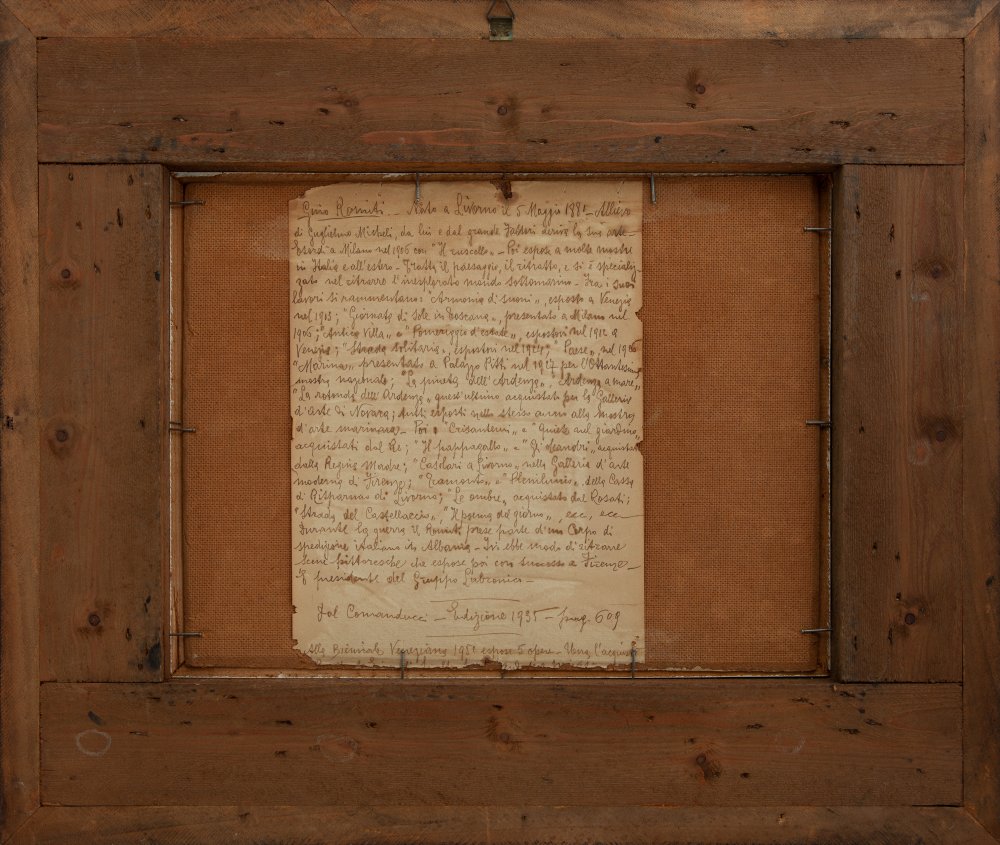 Gino Romiti - Nato a Livorno il 5 Maggio 1881 - Allievo
di Guglielmo Micheli, da lui e dal grande Fattori derivò la sua arte -
Esordì a Milano nel 1906 con "Il ruscello„ - Poi espose a molte mostre
in Italia e all'estero - Trattò il paesaggio, il ritratto, e si è specializ
zato nel ritrarre l'inesplorato mondo sottomarino - Fra i suoi
lavori si rammentano: "Armonia di suoni„, esposto a Venezia
nel 1913; "Giornata di sole in Toscana„, presentato a Milano nel
1906; "Antica Villa„ e "Pomeriggio d'estate„, espostovi nel 1912 a
Venezia; "Strada solitaria„, espostovi nel 1924; "Paese„, nel 1926
"Marina„ presentato a Palazzo Pitti nel 1927 per l'Ottantesima
mostra nazionale; "La pineta dell'Ardenza„, "Ardenza a mare„
"La rotonda dell'Ardenza„ quest'ultimo acquistato per la Galleria
d'arte di Novara; tutti esposti nello stesso anno alla mostra
d'arte marinara - Poi: "Crisantemi„ e "Quiete nel giardino„
acquistati dal Re; "Il pappagallo„ e "Gi oleandri„ acquistati
dalla Regina Madre; "Casolari a Livorno„ nella Galleria d'arte
moderna di Firenze; "Tramonto„ e "Plenilunio„ della Cassa
di Risparmio di Livorno; "Le ombre„ acquistato dal Rosati;
"Strada del Castellaccio„, "Il poema del giorno„, ecc, ecc
Durante la guerra il Romiti prese parte d'un Corpo di
spedizione italiano in Albania - Ivi ebbe modo di ritrarre
scene pittoresche che espose poi con successo a Firenze -
È presidente del Gruppo Labronico -
Dal Comanducci - Edizione 1935 - pag. 609
Alla Biennale Veneziana 1951 espose 5 opere - Una l'acquistò